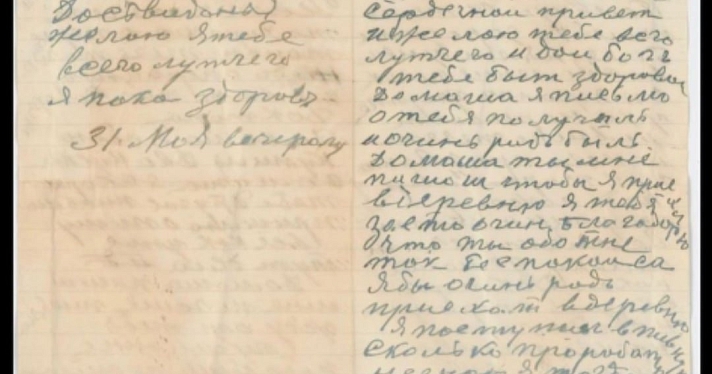 Досвиданья
желаю я тебе
всего лутчего
я пока здоровъ
31 Мая вечиром
сердечной привет
и желаю тебе всего
лутчего и дай богъ
тебе быт здоровой
Домаша я писмо
отебя получилъ
и очинь радъ былъ
Домаша ты мне
пишош чтобы я прие
вдеревню я тебя
заето очин благодорю
что ты обо мне
так беспокоиса
я бы очинь радъ
приехат вдеревню
я поступил
сколько проработ